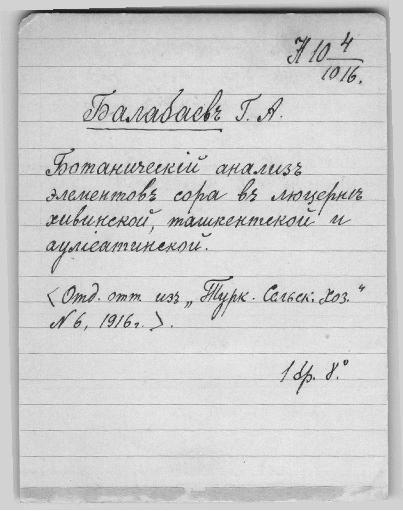 Н 10 4/1916.
Балабаевъ Г. А.
Ботаническій анализъ
элементовъ сора въ люцернѣ
хивинской, ташкентской и
аулеатинской.
<Отд. отт. изъ „Турк. Сельск. Хоз.“
№ 6, 1916 г.>.
1 бр. 8°